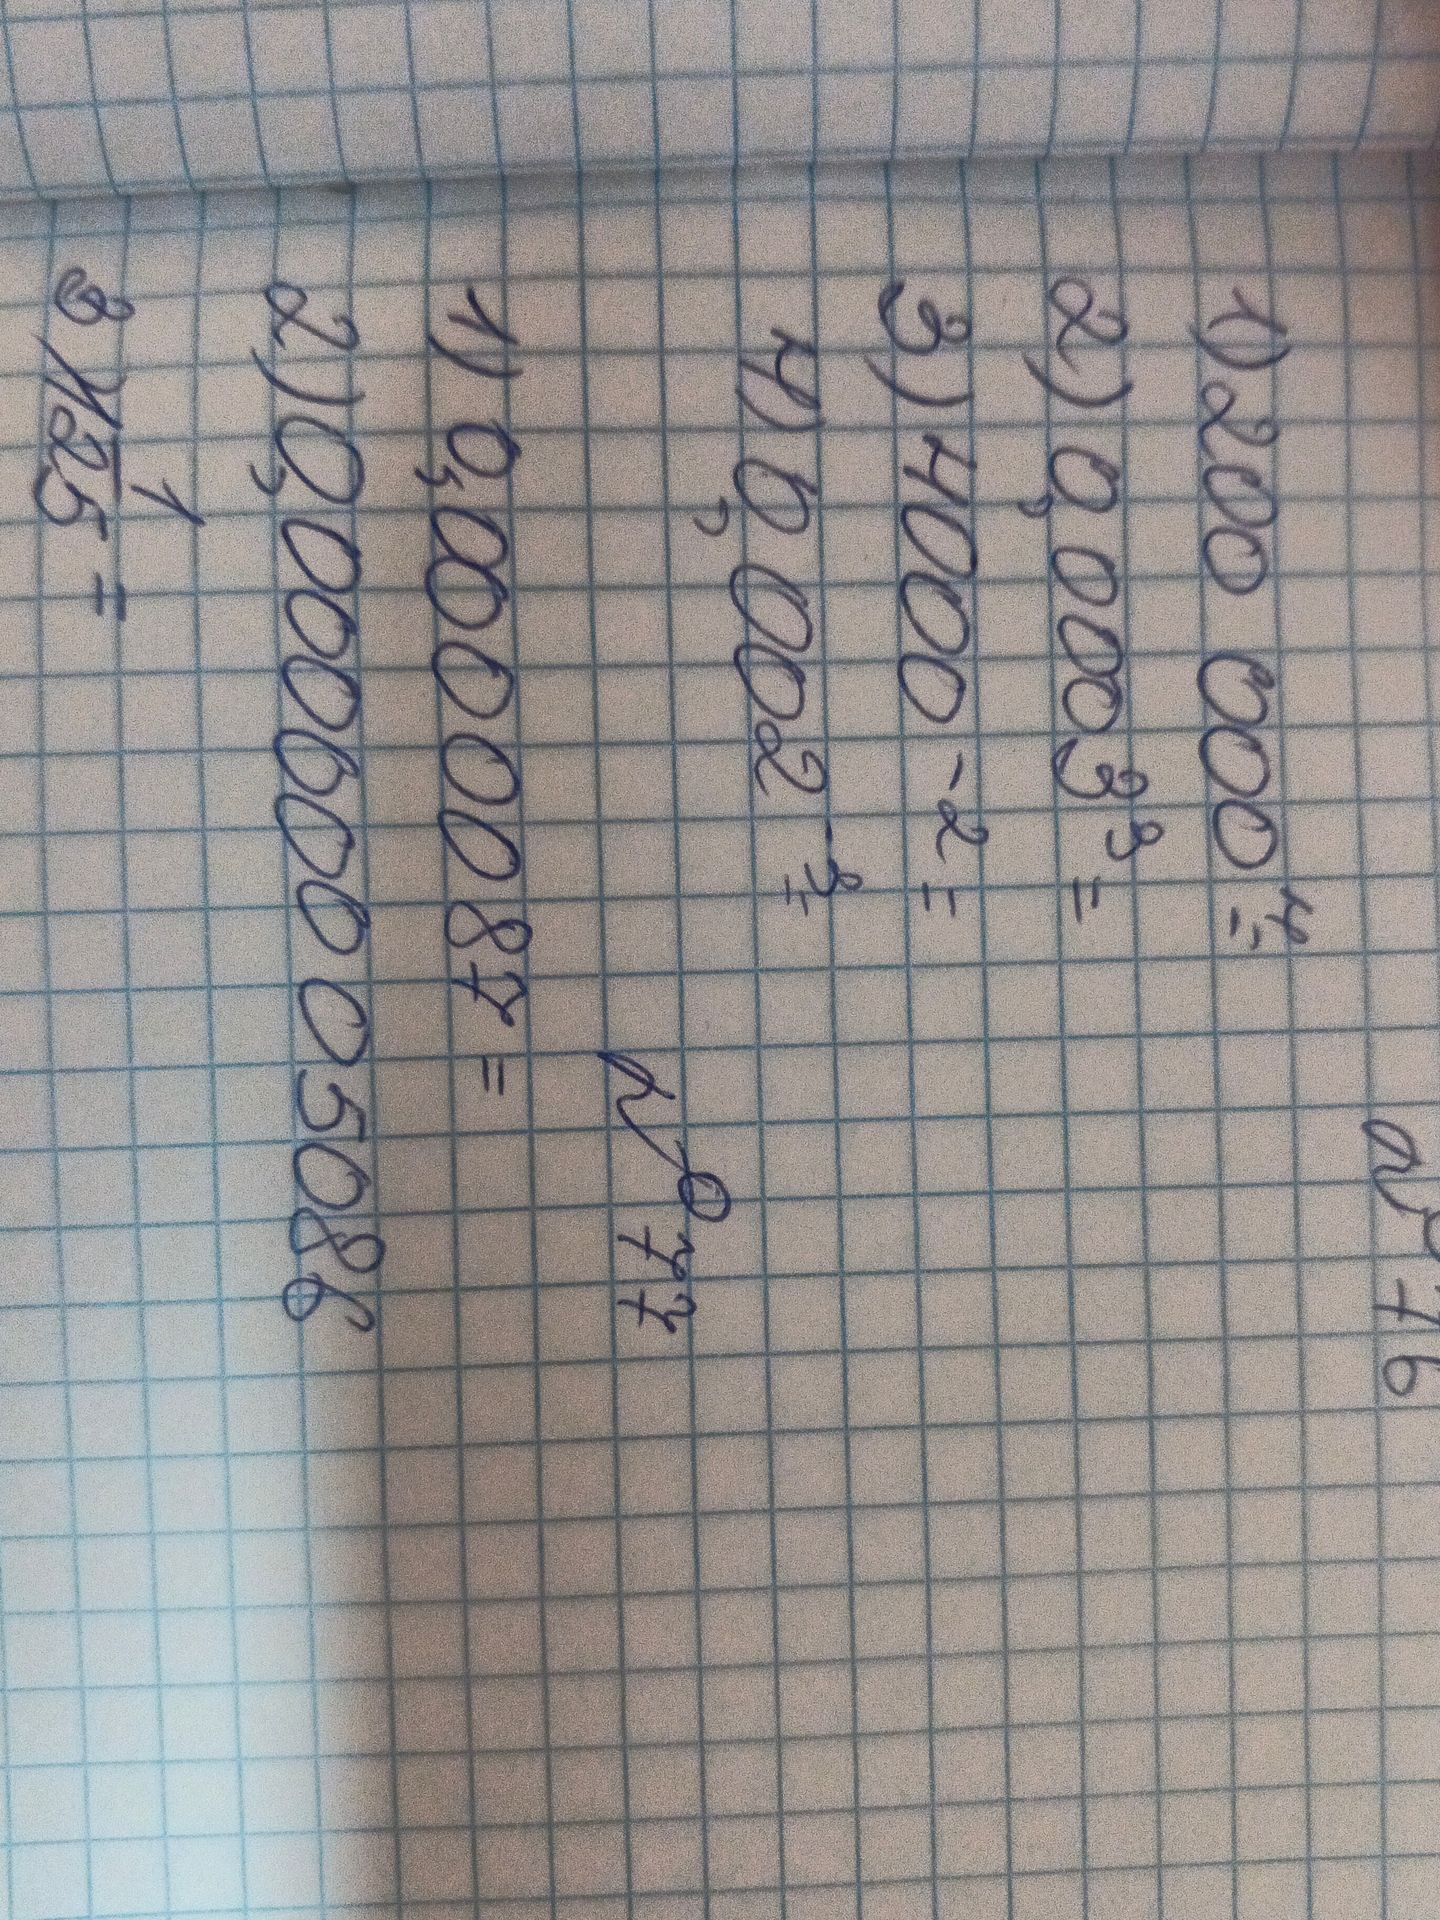 № 76
1) 200 000⁴ =
2) 0,0003³ =
3) 400⁻² =
4) 0,002⁻³ =
№ 77
1) 0,0000087 =
2) 0,00000005086
3) 1/125 =